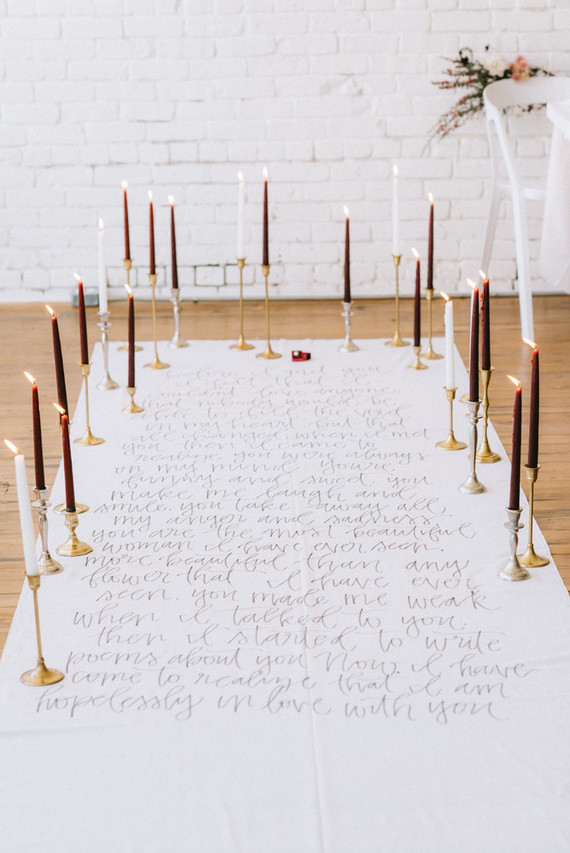 before i met you
i felt that i
couldn't love anyone
that nobody would be
able to fill the void
in my heart but that
all changed when i met
you then i came to
realize you were always
on my mind you're
funny and sweet. you
make me laugh and
smile. you take away all
my anger and sadness
you are the most beautiful
woman i have ever seen.
more beautiful than any
flower that i have ever
seen. you made me weak
when i talked to you.
then i started to write
poems about you now. i have
come to realize that i am
hopelessly in love with you